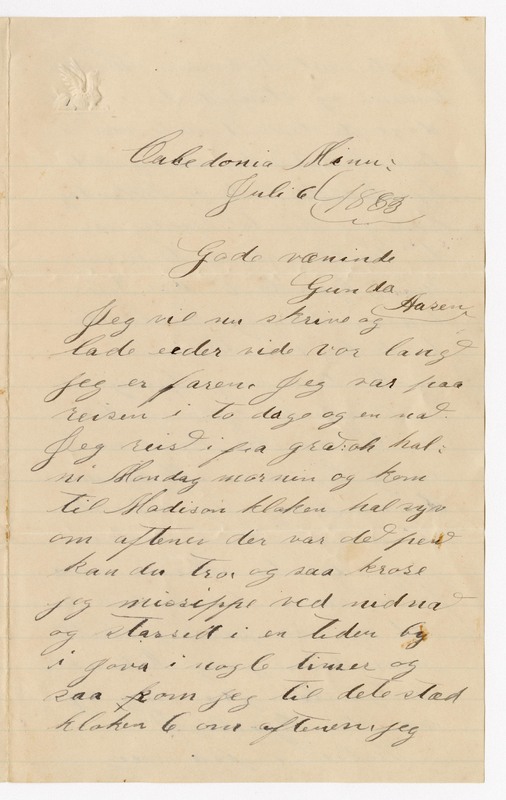 Caledonia Minn:
Juli 6 1883
Gode væninde
Gunda Hazen
Jeg vil nu skrive og
lade eeder vide vor langd
jeg er faren. Jeg var paa
reisen i to dage og en nad.
Jeg reisd i fra
ni Mondag mornin og kom
til Madison klaken hal syv
om aftenen der var ded pend
kan du tro, og saa krose
jeg miosippe ved nidnad
og i en liden by
i Jova i nogle timer og
saa kom jeg til dete stæd
klaken 6 om aftenen, jeg